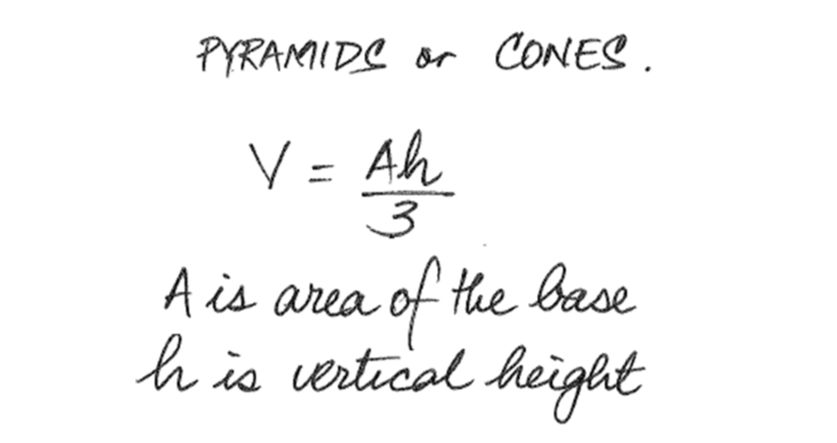 PYRAMIDS or CONES.
V = Ah
3
A is area of the base
h is vertical height